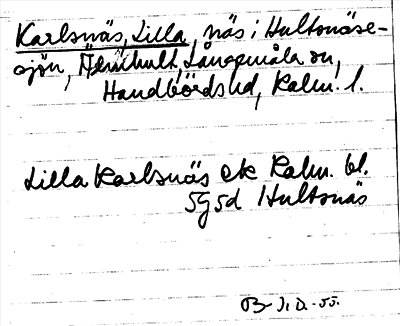 Karlsnäs, Lilla, näs i Hultsnäse-
sjön, Älmhult, Långemåla sn,
Handbörds hd, Kalm. l.
Lilla Karlsnäs ek Kalm. bl.
5g5d Hultsnäs
B J.D. -55.